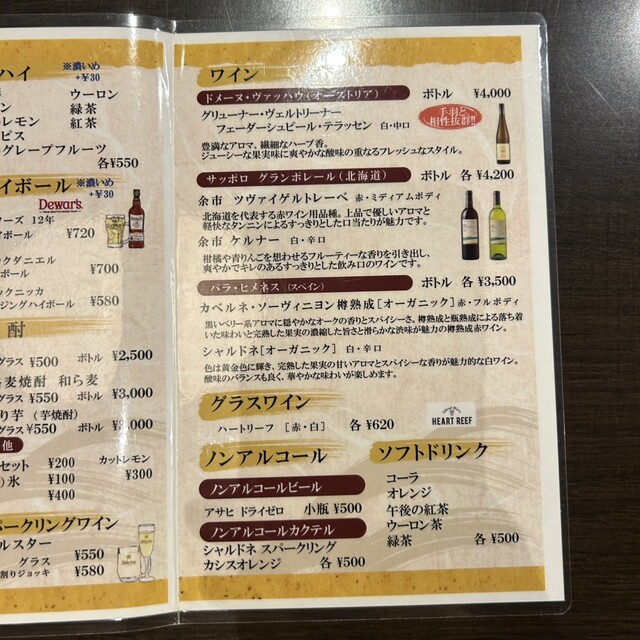 ハイ ※濃いめ
+¥30
ウーロン
ン 緑茶
レモン 紅茶
ピス
グレープフルーツ
各¥550
イボール ※濃いめ
+¥30
Dewar's
ーズ 12年
イボール ¥720
ックダニエル
ボール ¥700
ックニッカ
ジングハイボール ¥580
酎
グラス ¥500 ボトル ¥2,500
麦焼酎 和ら麦
グラス¥550 ボトル ¥3,000
り芋 (芋焼酎)
グラス¥550 ボトル ¥3,000
他
セット ¥200 カットレモン
)氷 ¥100 ¥300
¥400
パークリングワイン
ルスター
グラス ¥550
割りジョッキ ¥580
ワイン
ドメーヌ・ヴァッハウ(オーストリア) ボトル ¥4,000
グリューナー・ヴェルトリーナー
フェーダーシュピール・テラッセン 白・中口
手羽と
相性抜群!!
豊満なアロマ、繊細なハーブ香。
ジューシーな果実味に爽やかな酸味の重なるフレッシュなスタイル。
サッポロ グランポレール(北海道) ボトル 各¥4,200
余市 ツヴァイゲルトレーベ 赤・ミディアムボディ
北海道を代表する赤ワイン用品種。上品で優しいアロマと
軽快なタンニンによるすっきりとした口当たりが魅力です。
余市 ケルナー 白・辛口
柑橘や青りんごを想わせるフルーティーな香りを引き出し、
爽やかでキレのあるすっきりとした飲み口のワインです。
パラ・ヒメネス(スペイン) ボトル 各¥3,500
カベルネ・ソーヴィニヨン樽熟成[オーガニック]赤・フルボディ
黒いベリー系アロマに穏やかなオークの香りとスパイシーさ。樽熟成と瓶熟成による落ち着
いた味わいと完熟した果実の濃縮した旨さと滑らかな渋味が魅力の樽熟成赤ワイン。
シャルドネ[オーガニック] 白・辛口
色は黄金色に輝き、完熟した果実の甘いアロマとスパイシーな香りが魅力的な白ワイン。
酸味のバランスも良く、華やかな味わいが楽しめます。
グラスワイン
ハートリーフ [赤・白] 各 ¥620
HEART REEF
ノンアルコール
ノンアルコールビール
アサヒ ドライゼロ 小瓶 ¥500
ノンアルコールカクテル
シャルドネ スパークリング
カシスオレンジ 各 ¥500
ソフトドリンク
コーラ
オレンジ
午後の紅茶
ウーロン茶
緑茶 各 ¥500